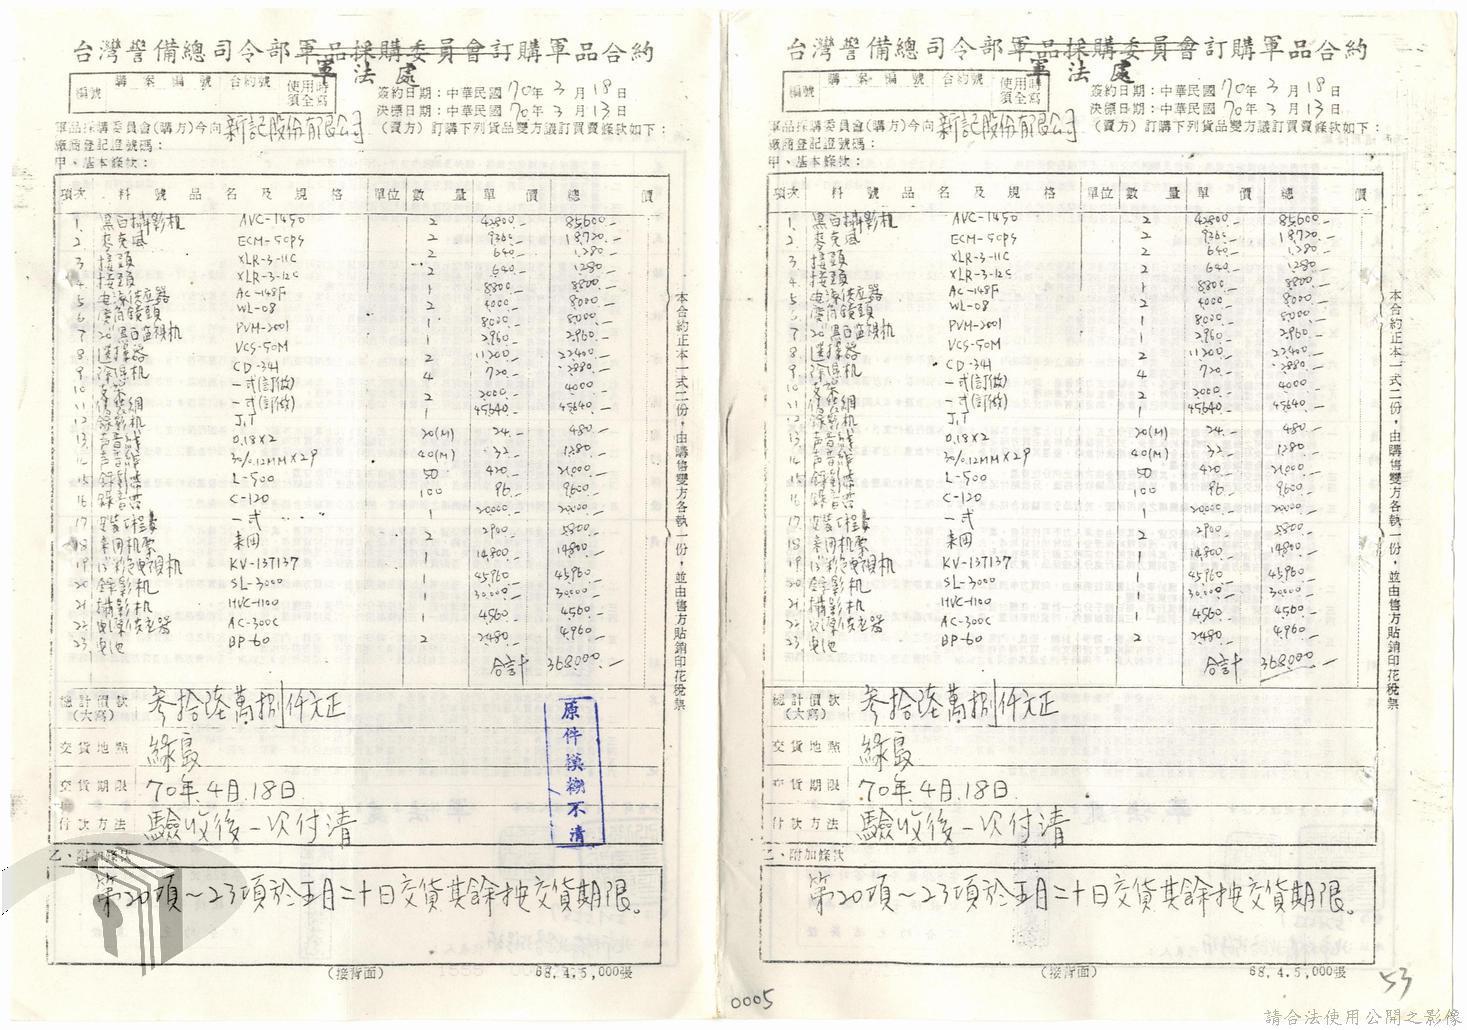 台灣警備總司令部軍品採購委員會訂購軍品合約
軍法處
購案編號 合約號 使用時須全寫
編號
簽約日期：中華民國70年3月18日
決標日期：中華民國70年3月13日
軍品採購委員會(購方)今向新記股份有限公司(賣方)訂購下列貨品雙方議訂買賣條款如下：
廠商登記證號碼：
甲、基本條款：
項次 料號品名及規格 單位 數量 單價 總價
1. 黑白攝影机 AVC-1450 2 42800.- 85600.-
2 麥克風 ECM-50PS 2 9360.- 18,720.-
3 接頭 XLR-3-11C 2 640.- 1,280.-
4 接頭 XLR-3-12C 2 640.- 1280.-
5 电源供应器 AC-148F 1 8800.- 8,800.-
6 廣角鏡頭 WL-08 2 4000.- 8000.-
7 20"黑白監視机 PVM-2001 1 8000.- 8000.-
8 選擇器 VCS-50M 1 2,960.- 2,960.-
9 除濕机 CD-341 2 11,200.- 22,400.-
10 一式(訂做) 4 720.- 2,880.-
11 一式(訂做) 2 2000.- 4000.-
12 錄影机 J.T 1 45640.- 45,640.-
13 声音線 0.18X2 20(M) 24.- 480.-
14 30/0.12MMX2P 40(M) 32.- 1,280.-
15 錄影帶 L-500 50 420.- 21,000.-
16 錄音帶 C-120 100 96.- 9600.-
17 安裝工程費 一式 1 20000.- 20000.-
18 專用机架 專用 2 2900.- 5800.-
19 13"彩色电視机 KV-13T137 1 14,800.- 14800.-
20 錄影机 SL-3000 1 45,960.- 45,960.-
21 攝影机 HVC-1100 1 30,000.- 30,000.-
22 电源供应器 AC-300C 1 4,560.- 4,560.-
23 电池 BP-60 2 2480.- 4,960.-
合計 368,000.-
總計價款(大寫) 參拾陸萬捌仟元正
交貨地點 綠島
交貨期限 70年.4月.18日.
付款方法 驗收後一次付清
乙、附加條款
第20項～23項於五月二十日交貨其餘按交貨期限。
(接背面) 68.4.5,000張
本合約正本一式二份，由購售雙方各執一份，並由售方貼銷印花稅票
原件模糊不清
台灣警備總司令部軍品採購委員會訂購軍品合約
軍法處
購案編號 合約號 使用時須全寫
編號
簽約日期：中華民國70年3月18日
決標日期：中華民國70年3月13日
軍品採購委員會(購方)今向新記股份有限公司(賣方)訂購下列貨品雙方議訂買賣條款如下：
廠商登記證號碼：
甲、基本條款：
項次 料號品名及規格 單位 數量 單價 總價
1. 黑白攝影机 AVC-1450 2 42800.- 85600.-
2 麥克風 ECM-50PS 2 9360.- 18,720.-
3 接頭 XLR-3-11C 2 640.- 1,280.-
4 接頭 XLR-3-12C 2 640.- 1280.-
5 电源供应器 AC-148F 1 8800.- 8,800.-
6 廣角鏡頭 WL-08 2 4000.- 8000.-
7 20"黑白監視机 PVM-2001 1 8000.- 8000.-
8 選擇器 VCS-50M 1 2,960.- 2,960.-
9 除濕机 CD-341 2 11,200.- 22,400.-
10 一式(訂做) 4 720.- 2,880.-
11 一式(訂做) 2 2000.- 4000.-
12 錄影机 J.T 1 45640.- 45,640.-
13 声音線 0.18X2 20(M) 24.- 480.-
14 30/0.12MMX2P 40(M) 32.- 1,280.-
15 錄影帶 L-500 50 420.- 21,000.-
16 錄音帶 C-120 100 96.- 9600.-
17 安裝工程費 一式 1 20000.- 20000.-
18 專用机架 專用 2 2900.- 5800.-
19 13"彩色电視机 KV-13T137 1 14,800.- 14800.-
20 錄影机 SL-3000 1 45,960.- 45,960.-
21 攝影机 HVC-1100 1 30,000.- 30,000.-
22 电源供应器 AC-300C 1 4,560.- 4,560.-
23 电池 BP-60 2 2480.- 4,960.-
合計 368,000.-
總計價款(大寫) 參拾陸萬捌仟元正
交貨地點 綠島
交貨期限 70年.4月.18日
付款方法 驗收後一次付清
乙、附加條款
第20項～23項於五月二十日交貨其餘按交貨期限。
(接背面) 68.4.5,000張
本合約正本一式二份，由購售雙方各執一份，並由售方貼銷印花稅票
53
0005
請合法使用公開之影像